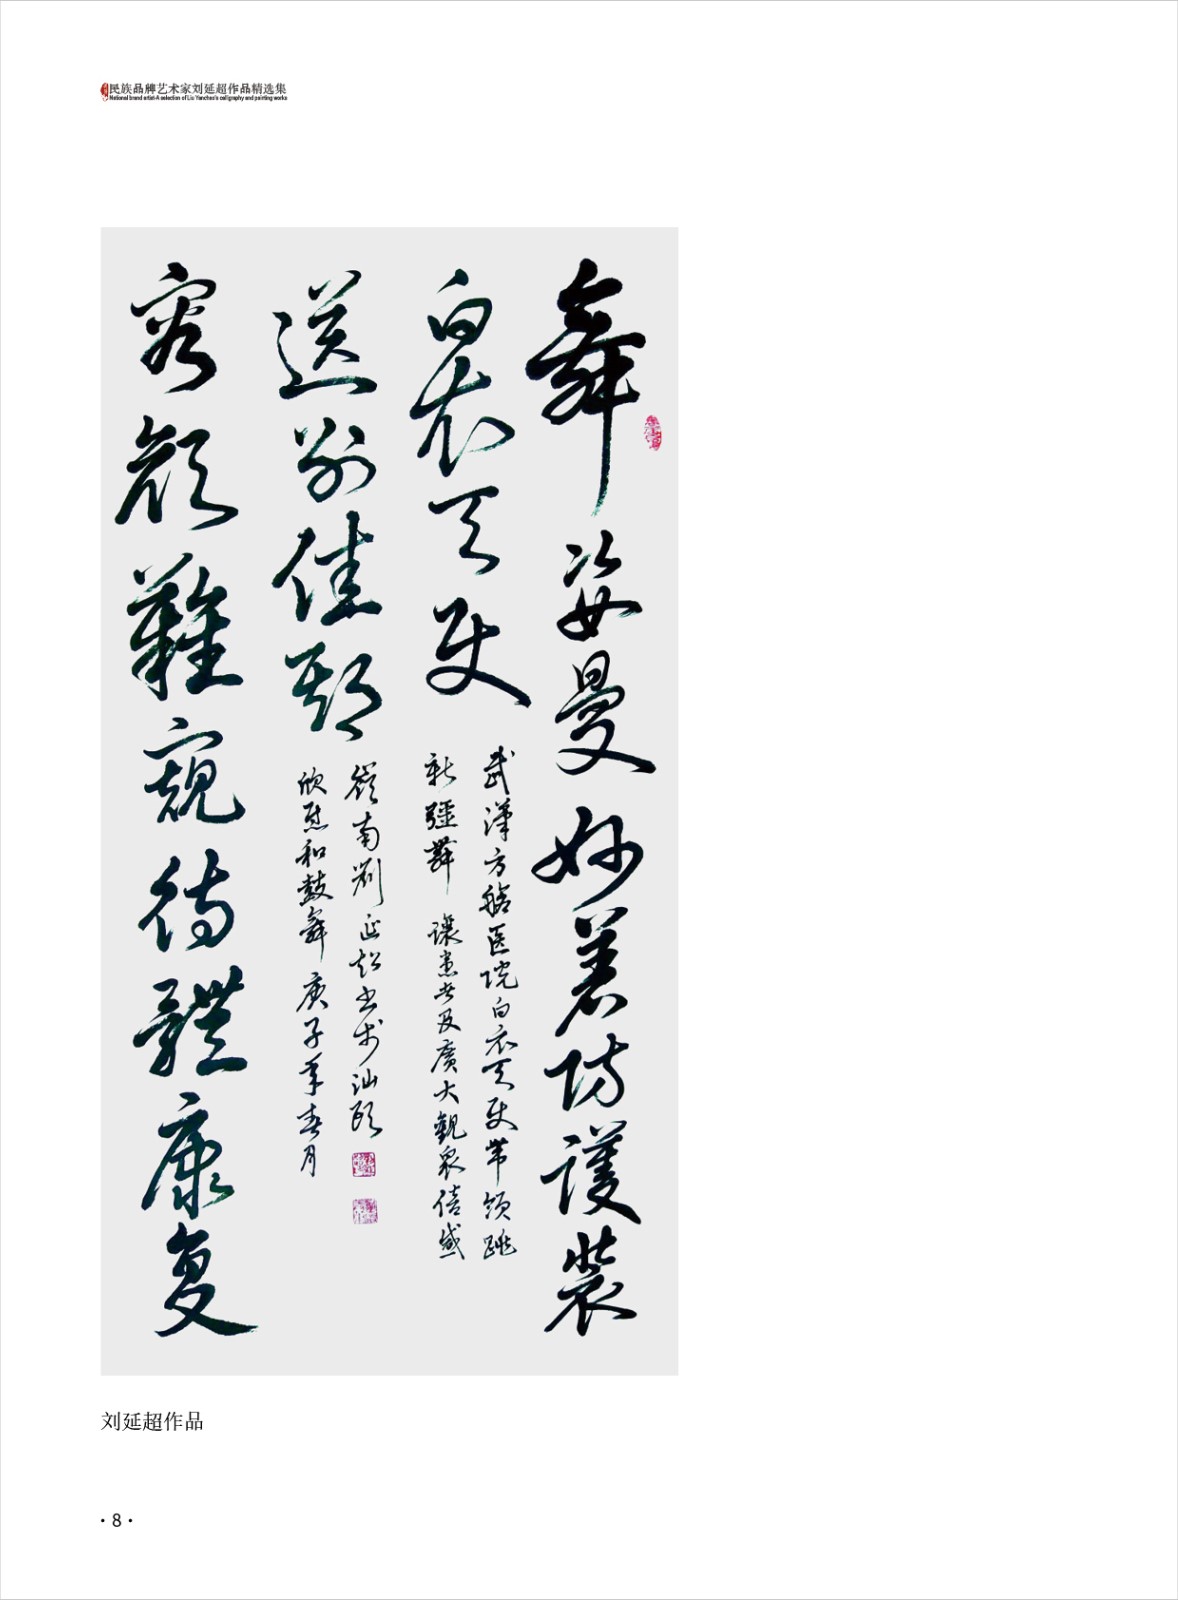 民族品牌艺术家刘延超作品精选集
National brand artist-A selection of Liu Yanchao's calligraphy and painting works
舞姿曼妙着防护裝
白衣天使
送別佳期
容颜難窺待體康复
武漢方舱医院白衣天使带领跳
新疆舞 讓患者及廣大觀衆倍感
欣慰和鼓舞 庚子年春月
嶺南劉延超书於汕頭
刘延超作品
·8·